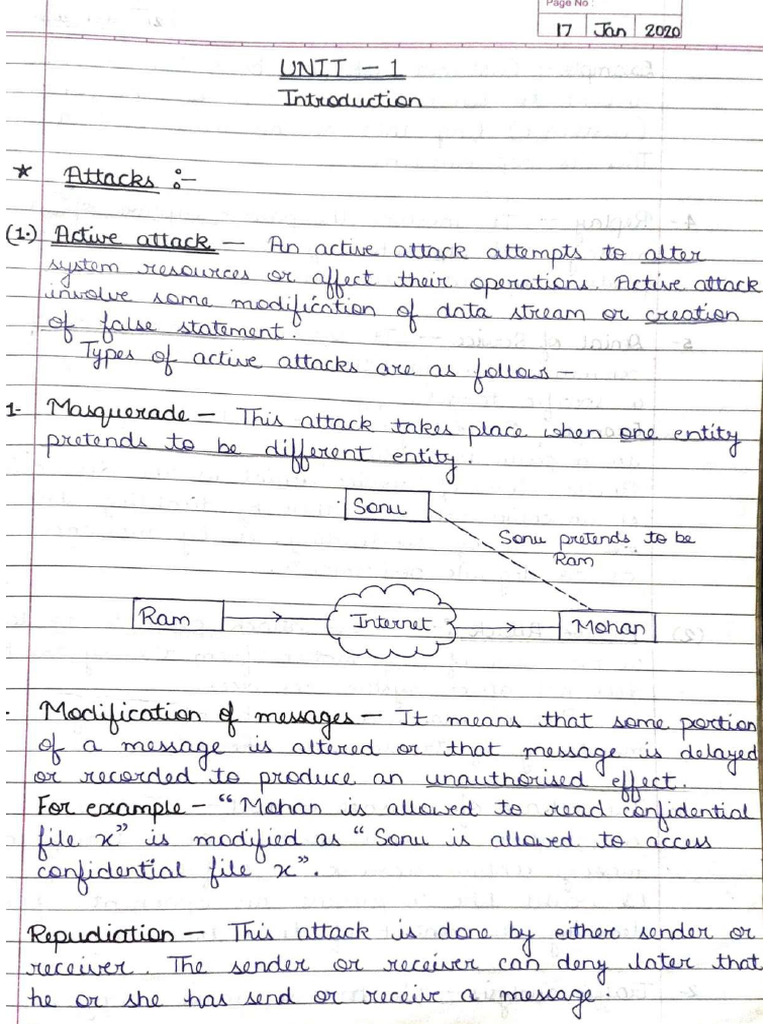 Page No :
17 Jan 2020
UNIT - 1
Introduction
* Attacks :-
(1.) Active attack - An active attack attempts to alter
system resources or affect their operations. Active attack
involve some modification of data stream or creation
of false statement.
Types of active attacks are as follows -
1- Masquerade - This attack takes place when one entity
pretends to be different entity.
Sonu
Sonu pretends to be
Ram
Ram
Internet
Mohan
Modification of messages - It means that some portion
of a message is altered or that message is delayed
or recorded to produce an unauthorised effect.
For example - "Mohan is allowed to read confidential
file x" is modified as "Sonu is allowed to access
confidential file x".
Repudiation - This attack is done by either sender or
receiver. The sender or receiver can deny later that
he or she has send or receive a message.